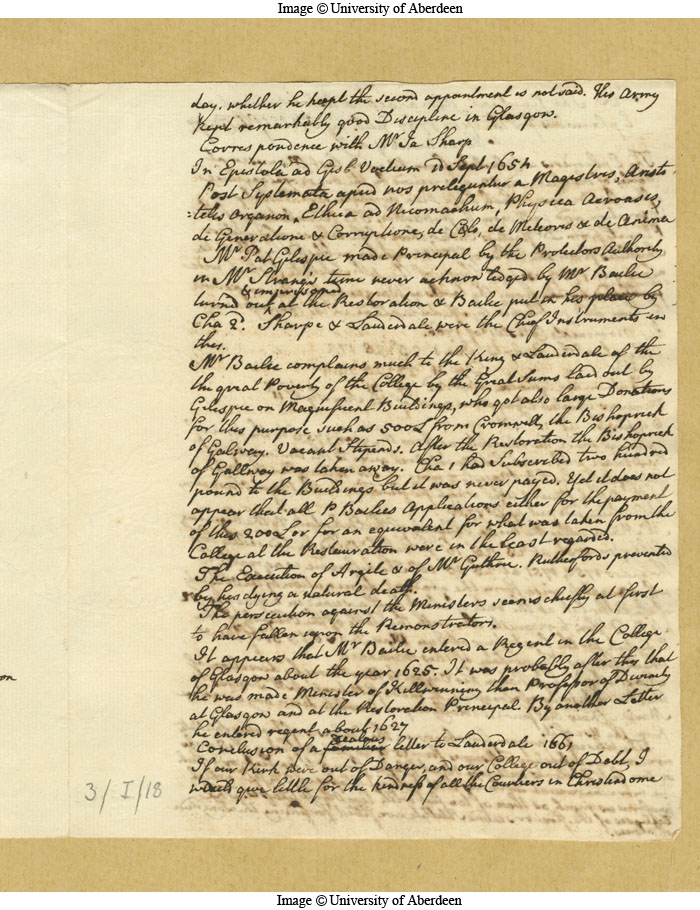 Image © University of Aberdeen
day. whether he keept the second appointment is not said. His Army
Kept remarkably good Discipline in Glasgow.
Correspondence with Mr Ja Sharp
In Epistola ad Gisb. Voetium Sept 1654
Post Systemata apud nos preleguntur a Magistris, Aristo
:telis Organon, Ethica ad Nicomachum, Physica Acroasis,
de Generatione & Corruptione, de Cœlo, de Meteoris & de Anima
Mr Pat Gilespie made Principal by the Protectors Authority
in Mr Strangs time never acknowledged by Mr Bailie
& imprisoned
turned out at the Restoration & Bailie put in his place by
Cha 2d. Sharpe & Lauderdale were the Chief Instruments in
this.
Mr Bailie complains much to the King & Lauderdale of the
the great Poverty of the College by the Great Sums laid out by
Gilespie on Magnificent Buildings, who got also large Donations
for this purpose such as 500L from Cromwell, the Bishoprick
of Galway. Vacant Stipends. After the Restoration the Bishoprick
of Gallway was taken away. Cha 1 had Subscribed two hundred
pound to the Buildings but it was never payed. Yet it does not
appear that all P Bailies Applications either for the payment
of this 200L or for an equivalent for what was taken from the
College at the Restauration were in the least regarded.
The Execution of Argile & of Mr Guthrie. Rutherfords prevented
by his dying a natural death.
The persecution against the Ministers seems chiefly at first
to have fallen upon the Remonstrators.
It appears that Mr Bailie entered a Regent in the College
of Glasgow about the year 1625. It was probably after this that
he was made Minister of Killwinning then Professor of Divinity
at Glasgow and at the Restoration Principal. By another Letter
he entered regent about 1627
zealous
Conclusion of a familiar letter to Lauderdale 1661
If our Kirk were out of Danger, and our College out of Debt, I
would give little for the kindness of all the Courtiers in Christendome
on
3/I/18
Image © University of Aberdeen